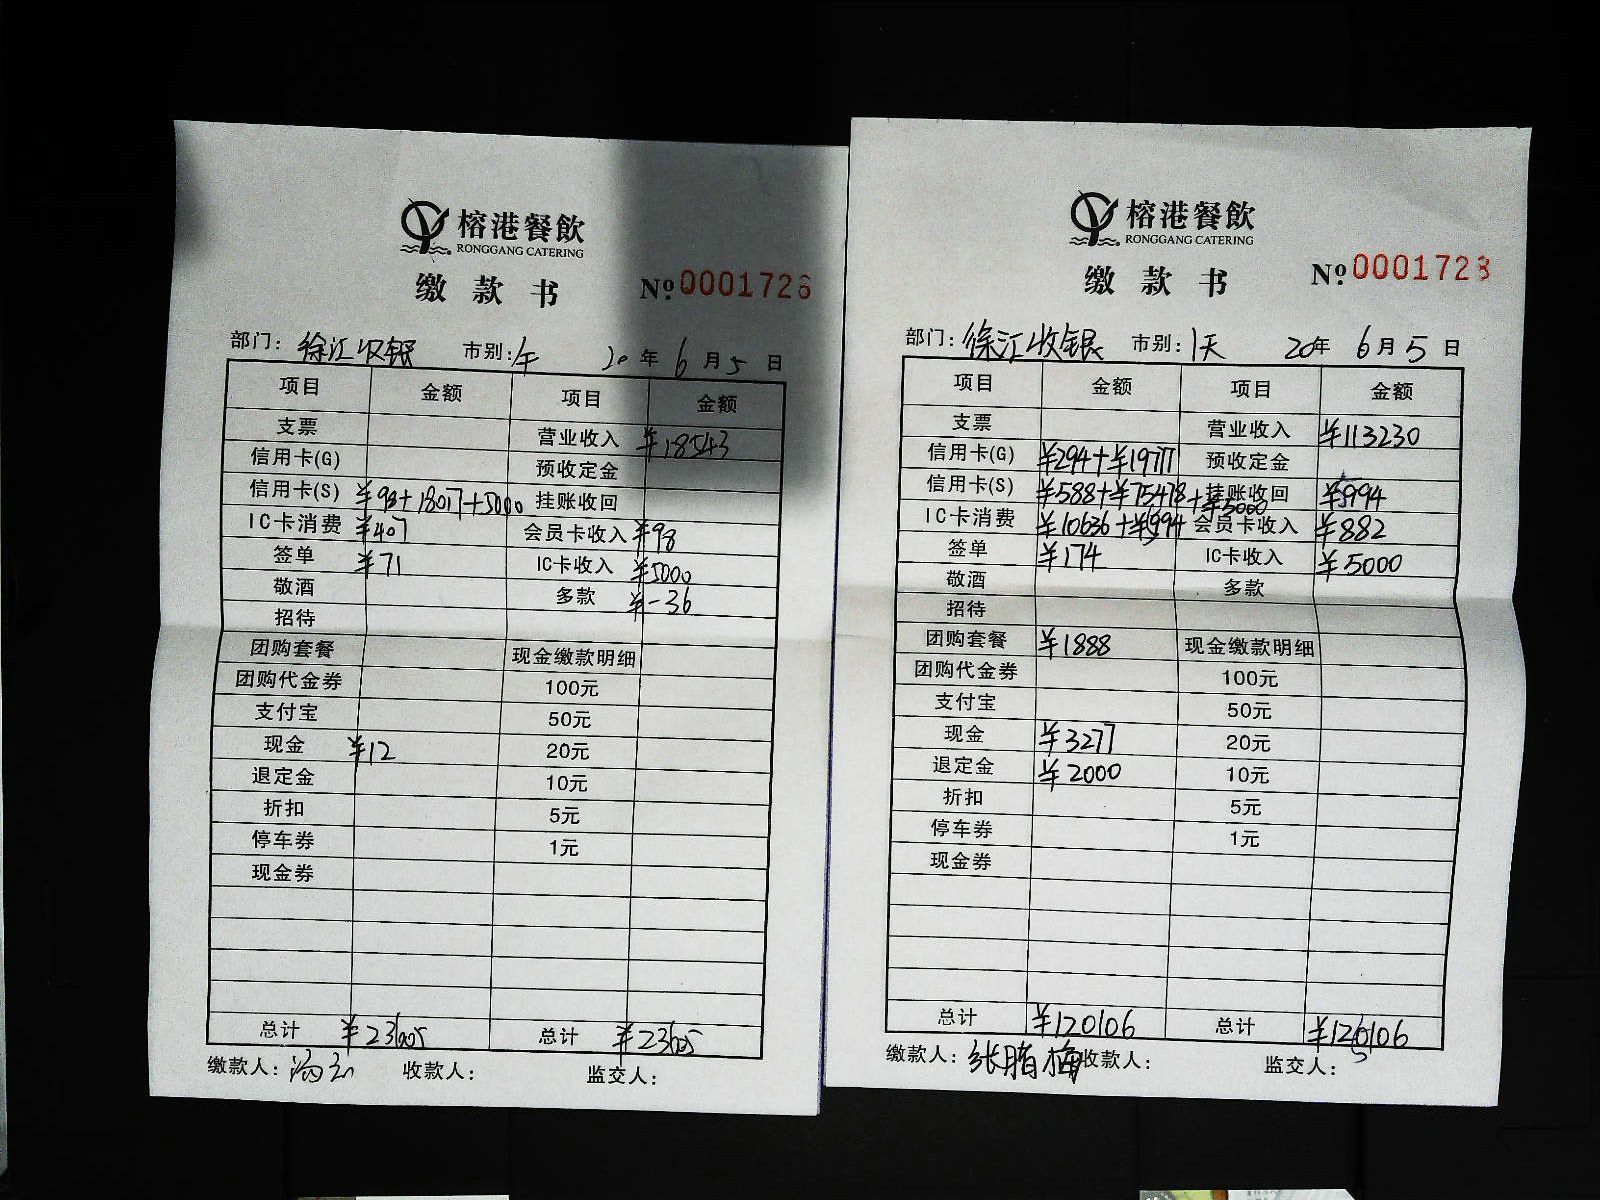 榕港餐飲
RONGGANG CATERING
缴款书 № 0001726
部门: 徐江收银 市别: 午 20年6月5日
项目 金额 项目 金额
支票 营业收入 ¥18543
信用卡(G) 预收定金
信用卡(S) ¥98+18017+5000 挂账收回
IC卡消费 ¥407 会员卡收入 ¥98
签单 ¥71 IC卡收入 ¥5000
敬酒 多款 ¥-36
招待
团购套餐 现金缴款明细
团购代金券 100元
支付宝 50元
现金 ¥12 20元
退定金 10元
折扣 5元
停车券 1元
现金券
总计 ¥23605 总计 ¥23605
缴款人: 收款人: 监交人:
榕港餐飲
RONGGANG CATERING
缴款书 № 0001728
部门: 徐江收银 市别: 1天 20年6月5日
项目 金额 项目 金额
支票 营业收入 ¥113230
信用卡(G) ¥294+¥19777 预收定金
信用卡(S) ¥588+¥75478+¥5000 挂账收回 ¥994
IC卡消费 ¥10636+¥994 会员卡收入 ¥882
签单 ¥174 IC卡收入 ¥5000
敬酒 多款
招待
团购套餐 ¥1888 现金缴款明细
团购代金券 100元
支付宝 50元
现金 ¥3277 20元
退定金 ¥2000 10元
折扣 5元
停车券 1元
现金券
总计 ¥120106 总计 ¥120106
缴款人: 张腊梅 收款人: 监交人: